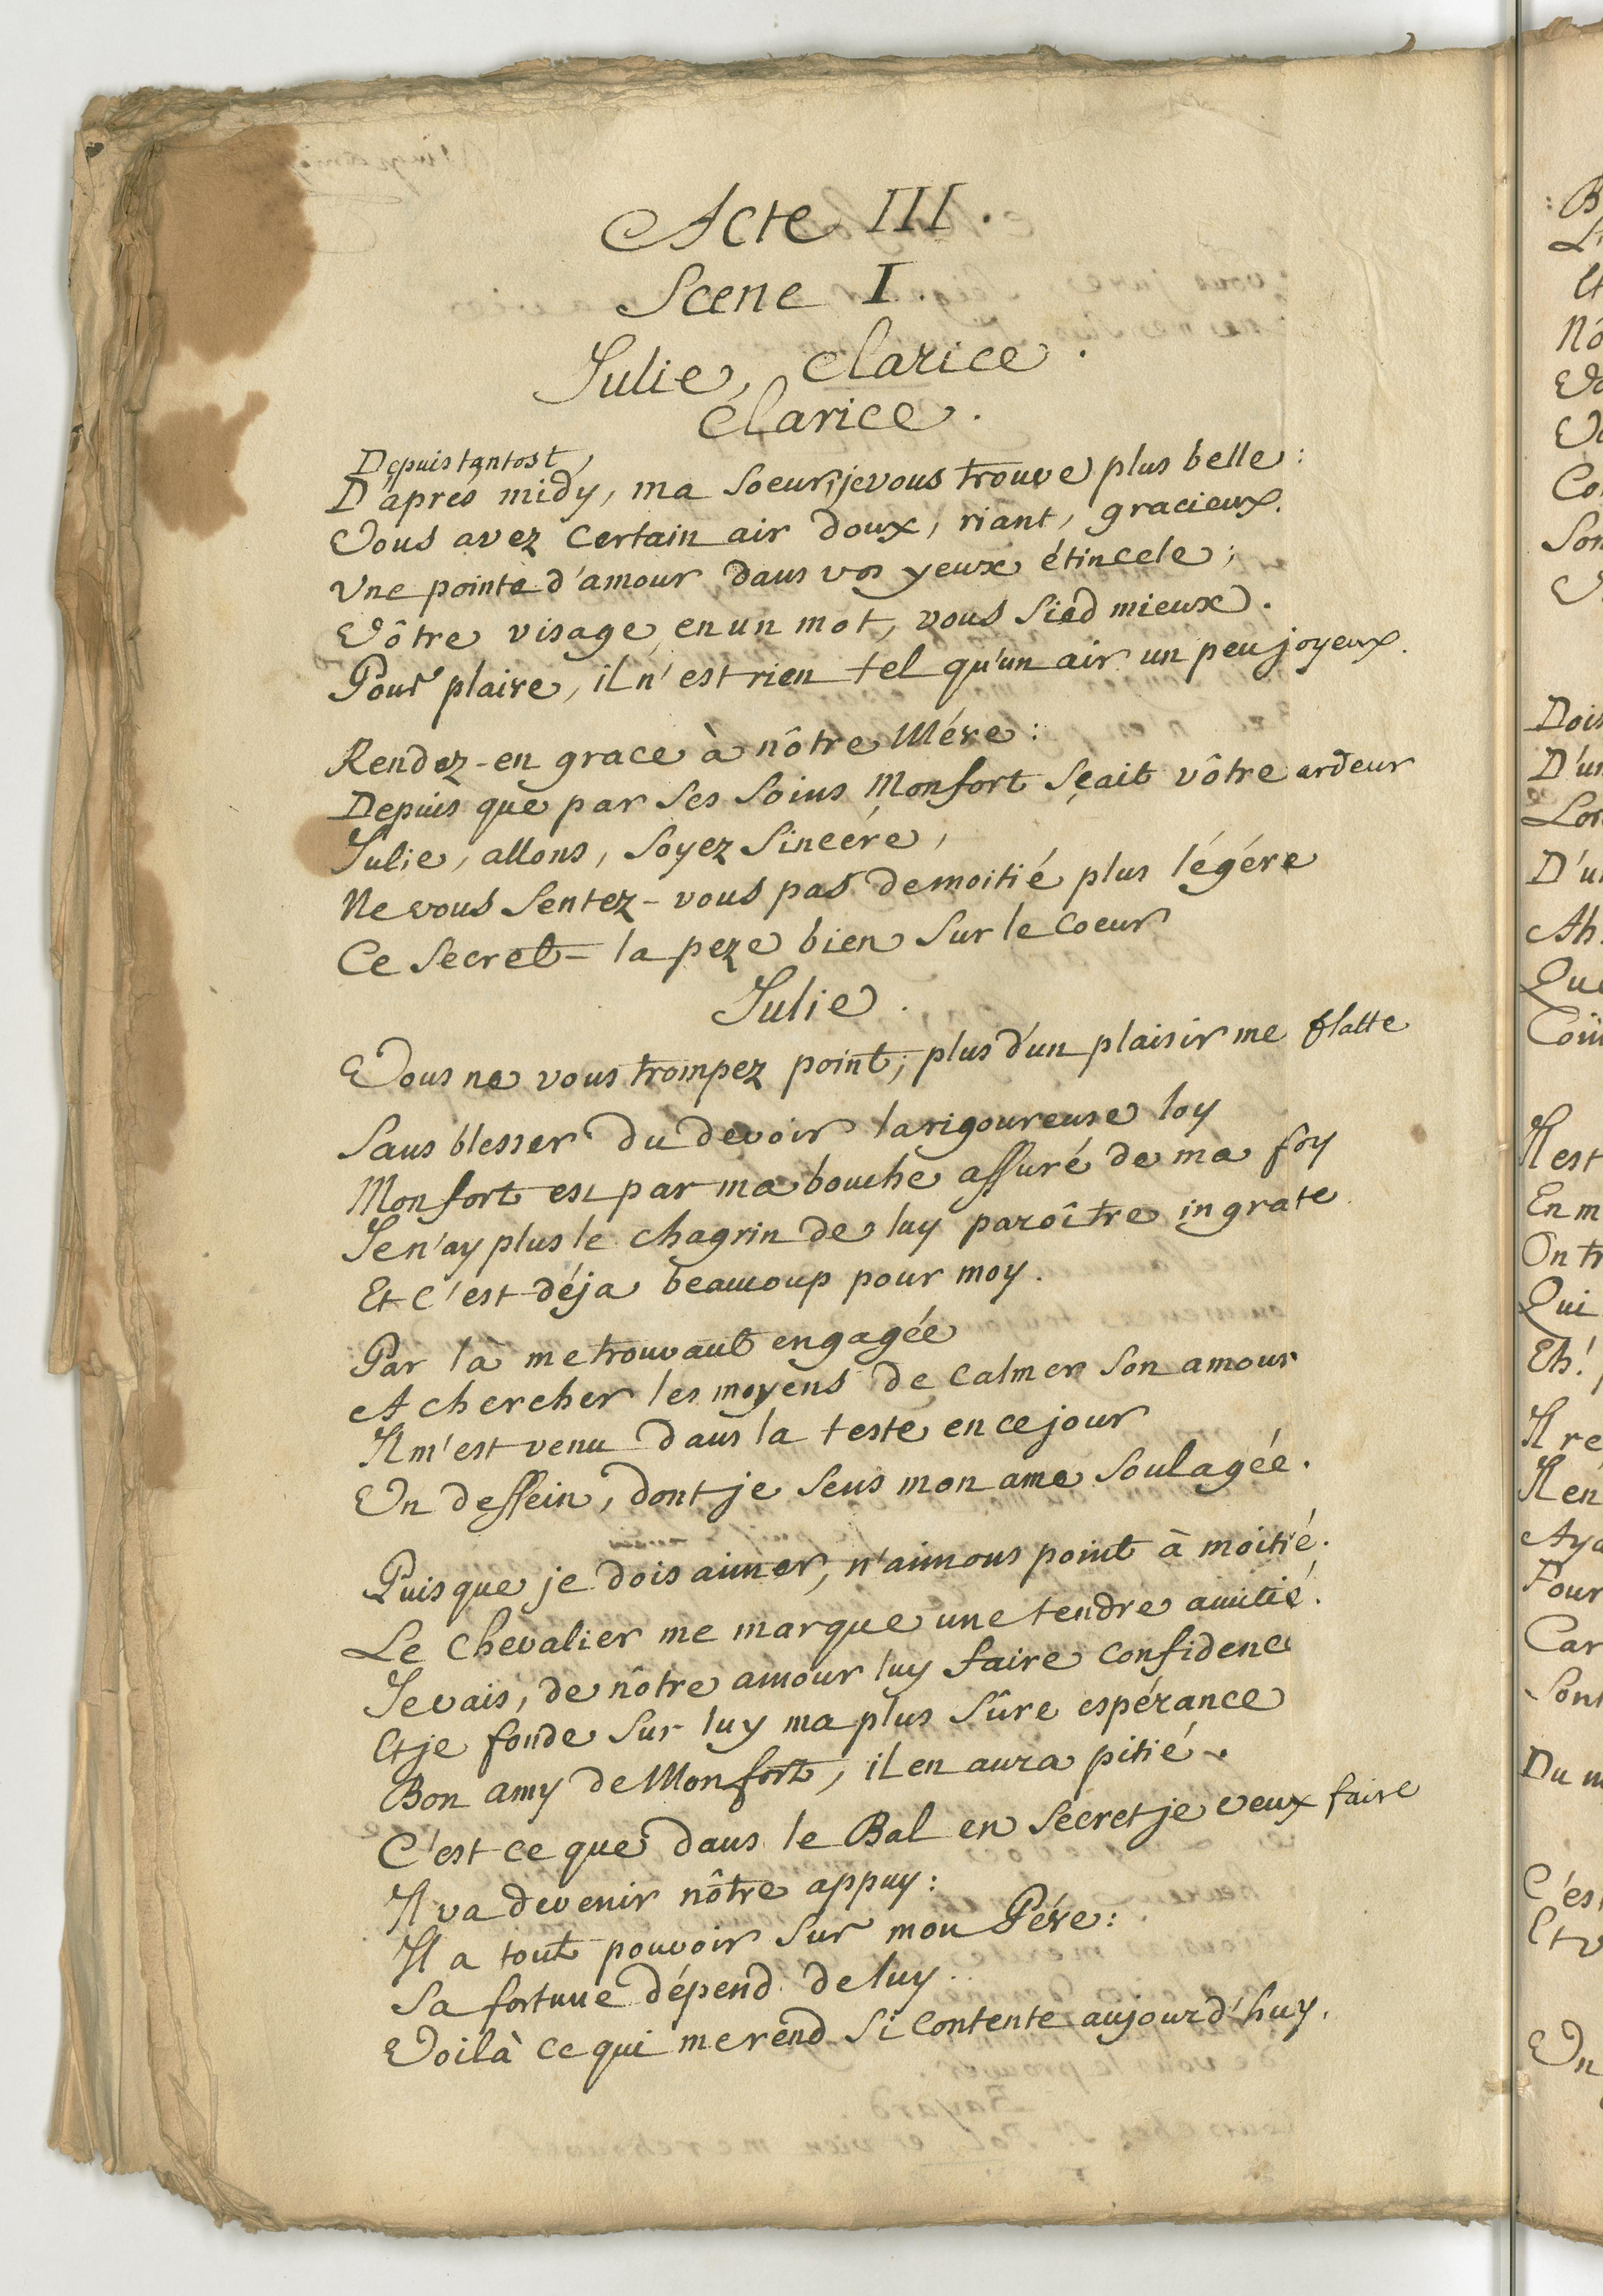 Acte III.
Scene I.
Julie, Clarice.
Clarice.
Depuis tantost,
D'aprés midy, ma Soeur, je vous trouve plus belle:
Vous avez Certain air doux, riant, gracieux.
Une pointe d'amour dans vos yeux étincele;
Vôtre visage, en un mot, vous Sied mieux.
Pour plaire, il n'est rien tel qu'un air un peu joyeux.
Rendez-en grace à nôtre Mére:
Depuis que par Ses Soins Monfort Sçait vôtre ardeur
Julie, allons, Soyez Sincére,
Ne vous Sentez-vous pas de moitié plus légére
Ce Secret-la peze bien Sur le Coeur
Julie.
Vous ne vous trompez point; plus d'un plaisir me flatte
Sans blesser du devoir la rigoureuse loy
Monfort est par ma bouche assuré de ma foy
Je n'ay plus le chagrin de luy paroître ingrate
Et c'est déja beaucoup pour moy.
Par là me trouvant engagée
A chercher les moyens de Calmer Son amour
Il m'est venu dans la teste en ce jour
Un dessein, dont je Sens mon ame Soulagée.
Puis que je dois aimer, n'aimons point à moitié.
Le Chevalier me marque une tendre amitié.
Je vais, de nôtre amour luy faire Confidence
Et je fonde Sur luy ma plus Sûre espérance
Bon amy de Monfort, il en aura pitié.
C'est ce que dans le Bal en Secret je veux faire
Il va devenir nôtre appuy:
Il a tout pouvoir Sur mon Pére:
Sa fortune dépend de luy.
Voilà ce qui me rend Si Contente aujourd'huy.